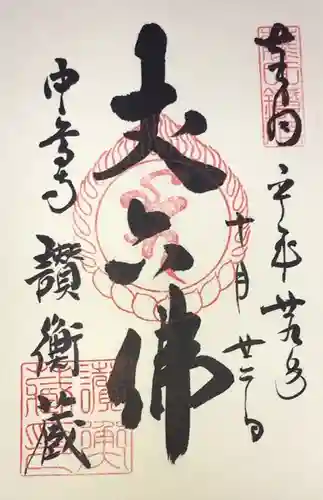 奉拝
平成廿九年
十月廿二日
大六佛
中尊寺
讃衡蔵